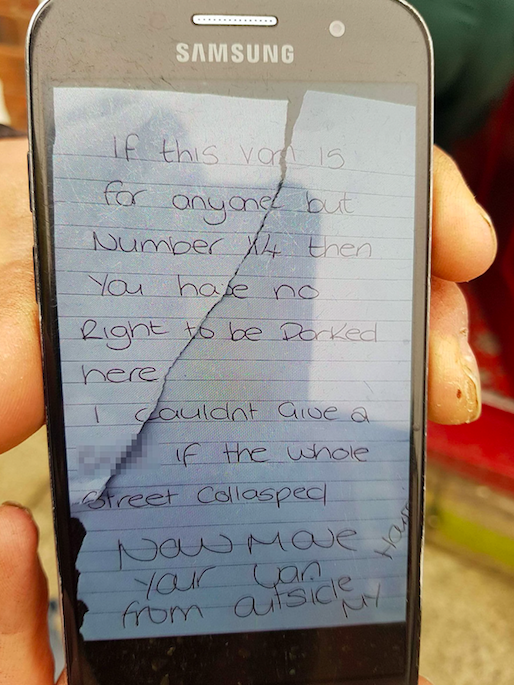 SAMSUNG
If this van is
for anyone but
Number 14 then
You have no
Right to be Parked
here
I couldnt Give a
if the whole
Street Collasped
Now Move
Your Van
from outside MY
House